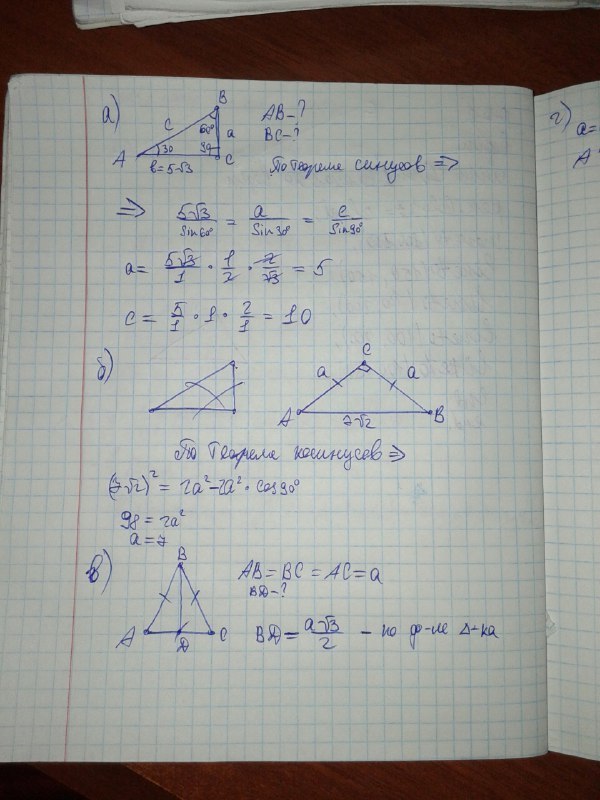 а)
B
AB-?
C
60°
a
BC-?
A
30
90
C
b=5√3
По Теореме синусов ⇒
⇒ 5√3/sin60° = a/sin30° = c/sin90°
a= 5√3/1 · 1/2 · 2/√3 = 5
c = 5/1 · 1 · 2/1 = 10
б)
C
a
a
A
B
7√2
По Теорема косинусов ⇒
(7√2)² = 2a²-2a² · cos90°
98 = 2a²
a = 7
в)
B
AB = BC = AC = a
BD-?
A
D
C
BD = a√3/2 - по фо-ле Δ-ка
г)
a=
A